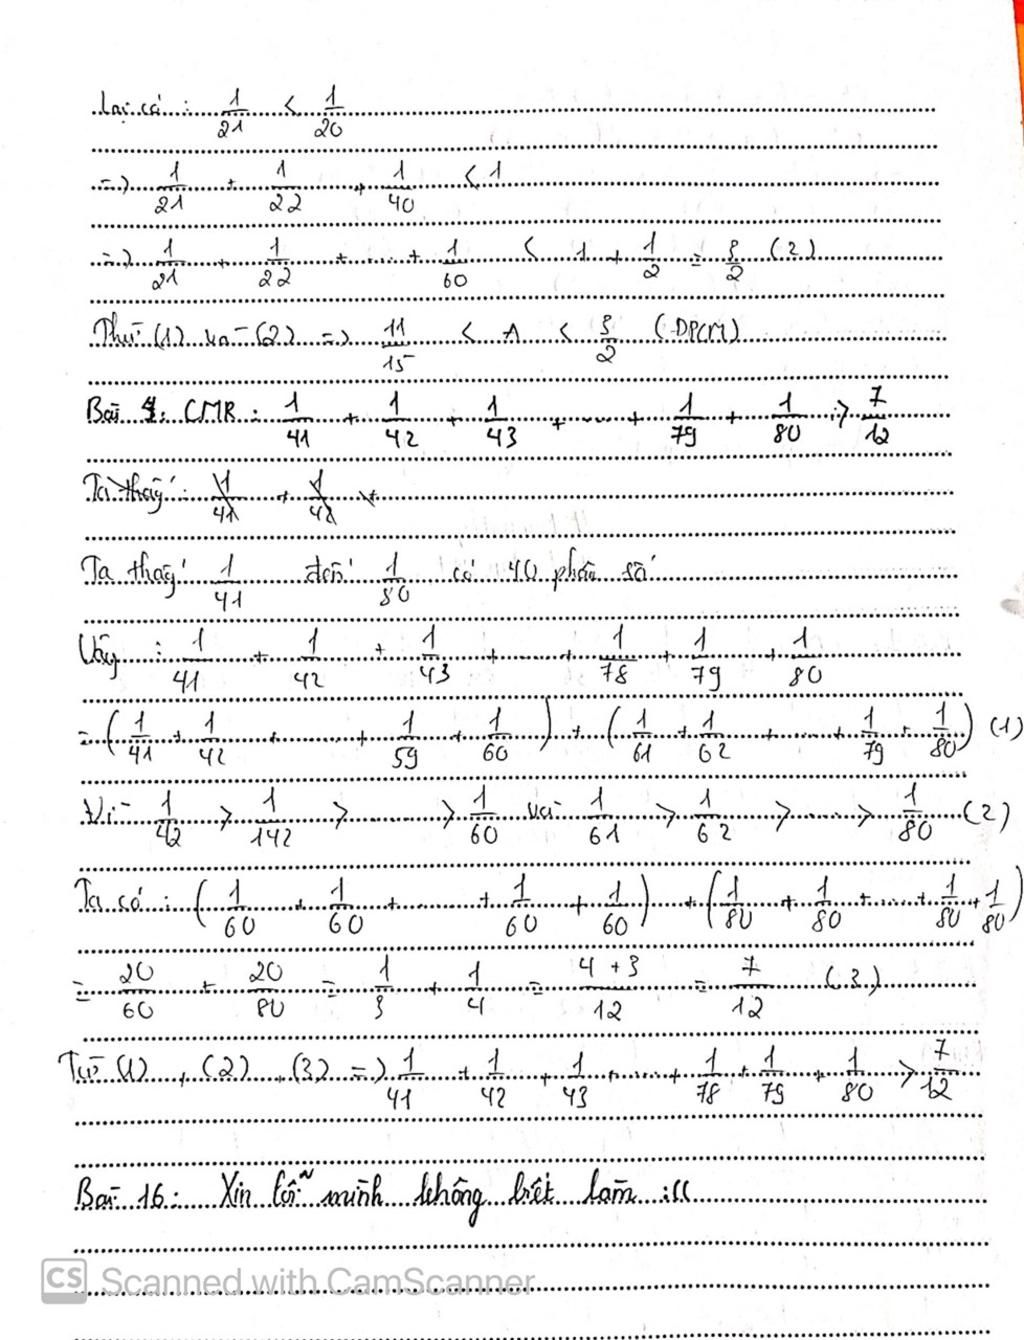 Lại có : 1/21 < 1/20
=> 1/21 + 1/22 + 1/40 < 1
=> 1/21 + 1/22 + ..... + 1/60 < 1 + 1/2 = 3/2 (2)
Thừ (1) và (2) => 11/15 < A < 3/2 (DPCM)
Bài 4: CMR : 1/41 + 1/42 + 1/43 + ..... + 1/79 + 1/80 > 7/12
Ta thấy : 1/41 + 1/42 +
Ta thấy 1/41 đến 1/80 có 40 phân số
Vậy : 1/41 + 1/42 + 1/43 + ..... + 1/78 + 1/79 + 1/80
= (1/41 + 1/42 ..... + 1/59 + 1/60) + (1/61 + 1/62 + ..... + 1/79 + 1/80) (1)
Vì 1/42 > 1/142 > ..... > 1/60 và 1/61 > 1/62 > ..... > 1/80 (2)
Ta có : (1/60 + 1/60 + ..... + 1/60 + 1/60) + (1/80 + 1/80 + ..... + 1/80 + 1/80)
= 20/60 + 20/80 = 1/3 + 1/4 = 4 + 3/12 = 7/12 (3)
Từ (1) , (2) , (3) => 1/41 + 1/42 + 1/43 + ..... + 1/78 + 1/79 + 1/80 > 7/12
Bài 16 : Xin lỗi mình không biết làm :((
CS Scanned with CamScanner